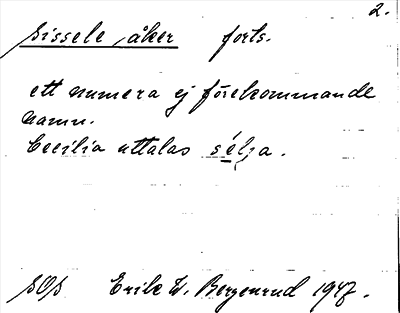 2.
Sissele åker forts.
ett numera ej förekommande
namn.
Cecilia uttalas sélja.
SOS Erik W. Bergenrud 1947.